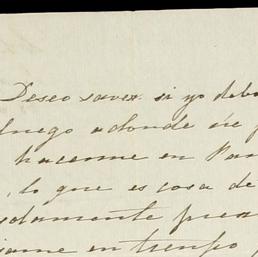 Deseo saver si yo debo
luego adonde
hacerme en Par
, lo que es cosa de
solamente para
iame en tiempo